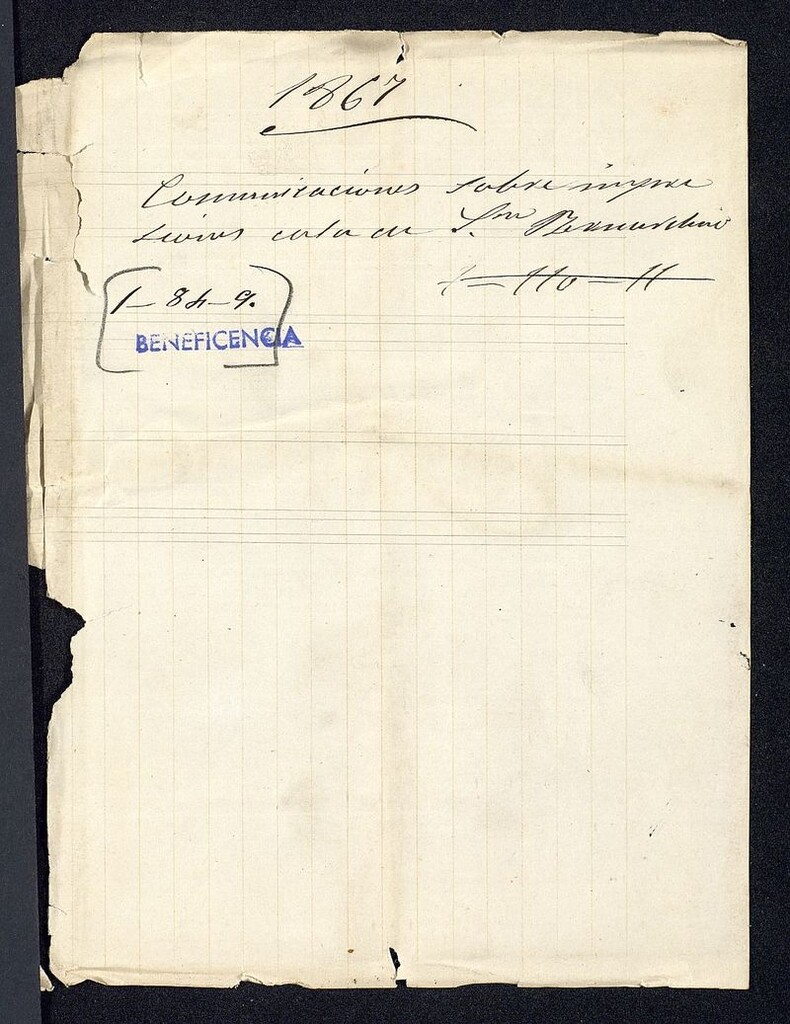 1867
Comunicaciones sobre impre
siones en la de Sn Bernardino
1-110-11
1-84-9.
BENEFICENCIA